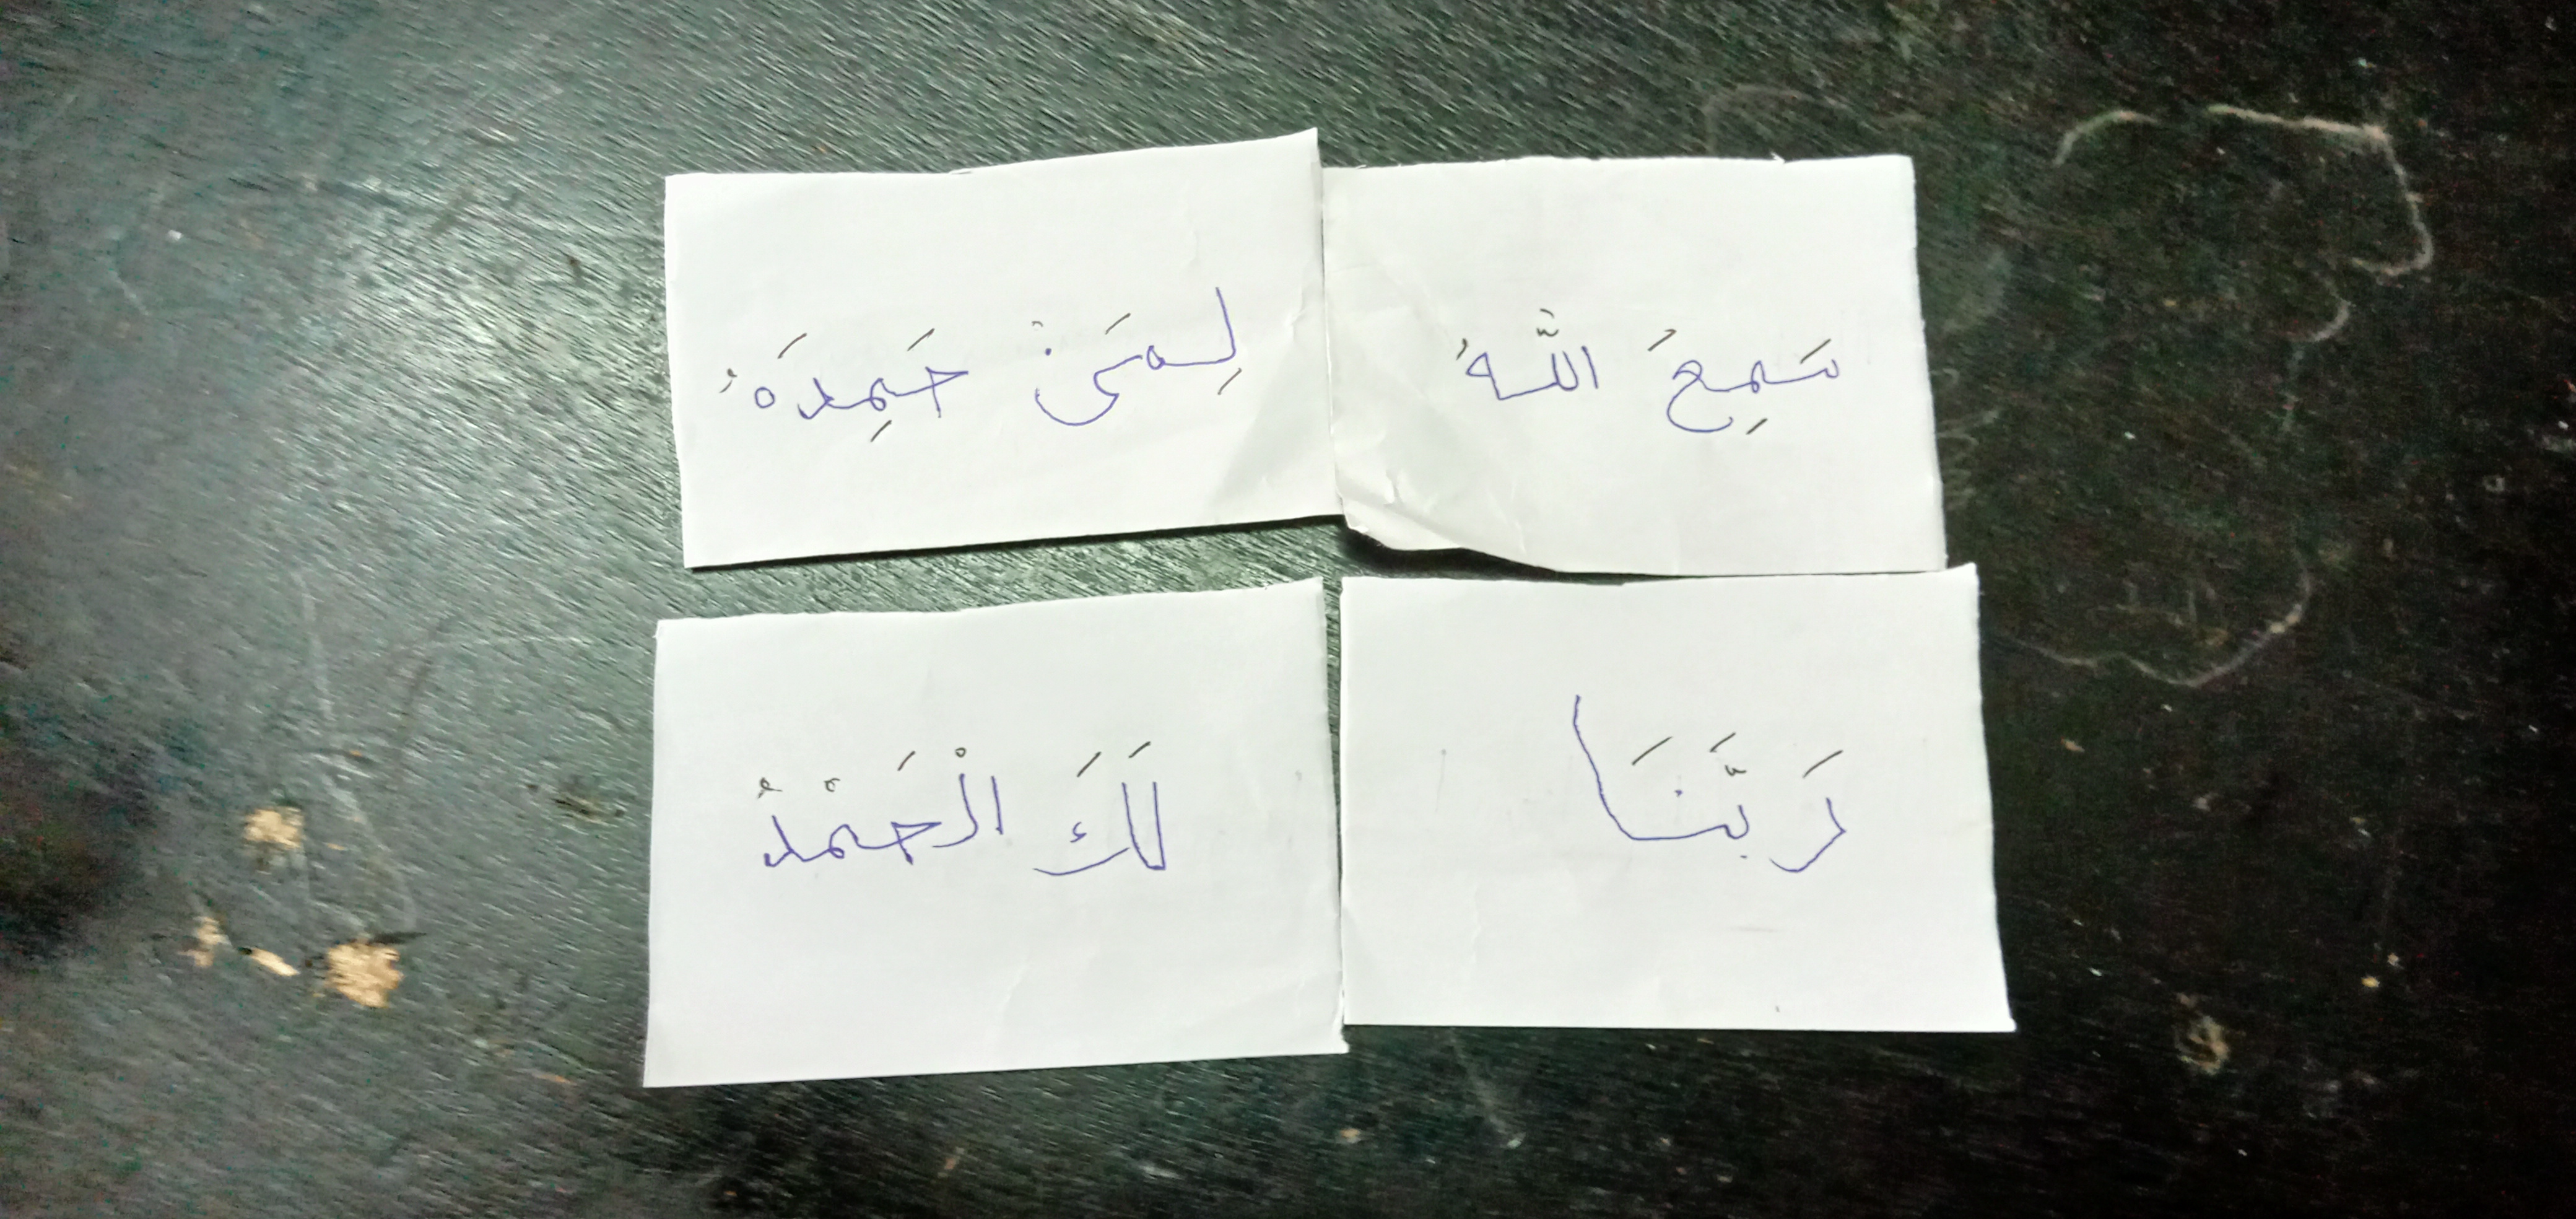 سَمِعَ اللَّهُ
لِمَنْ حَمِدَهُ
رَبَّنَا
لَكَ الْحَمْدُ